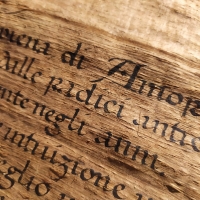 di Amor
alle radici antic
nte negli anni.
intuizione
iglio